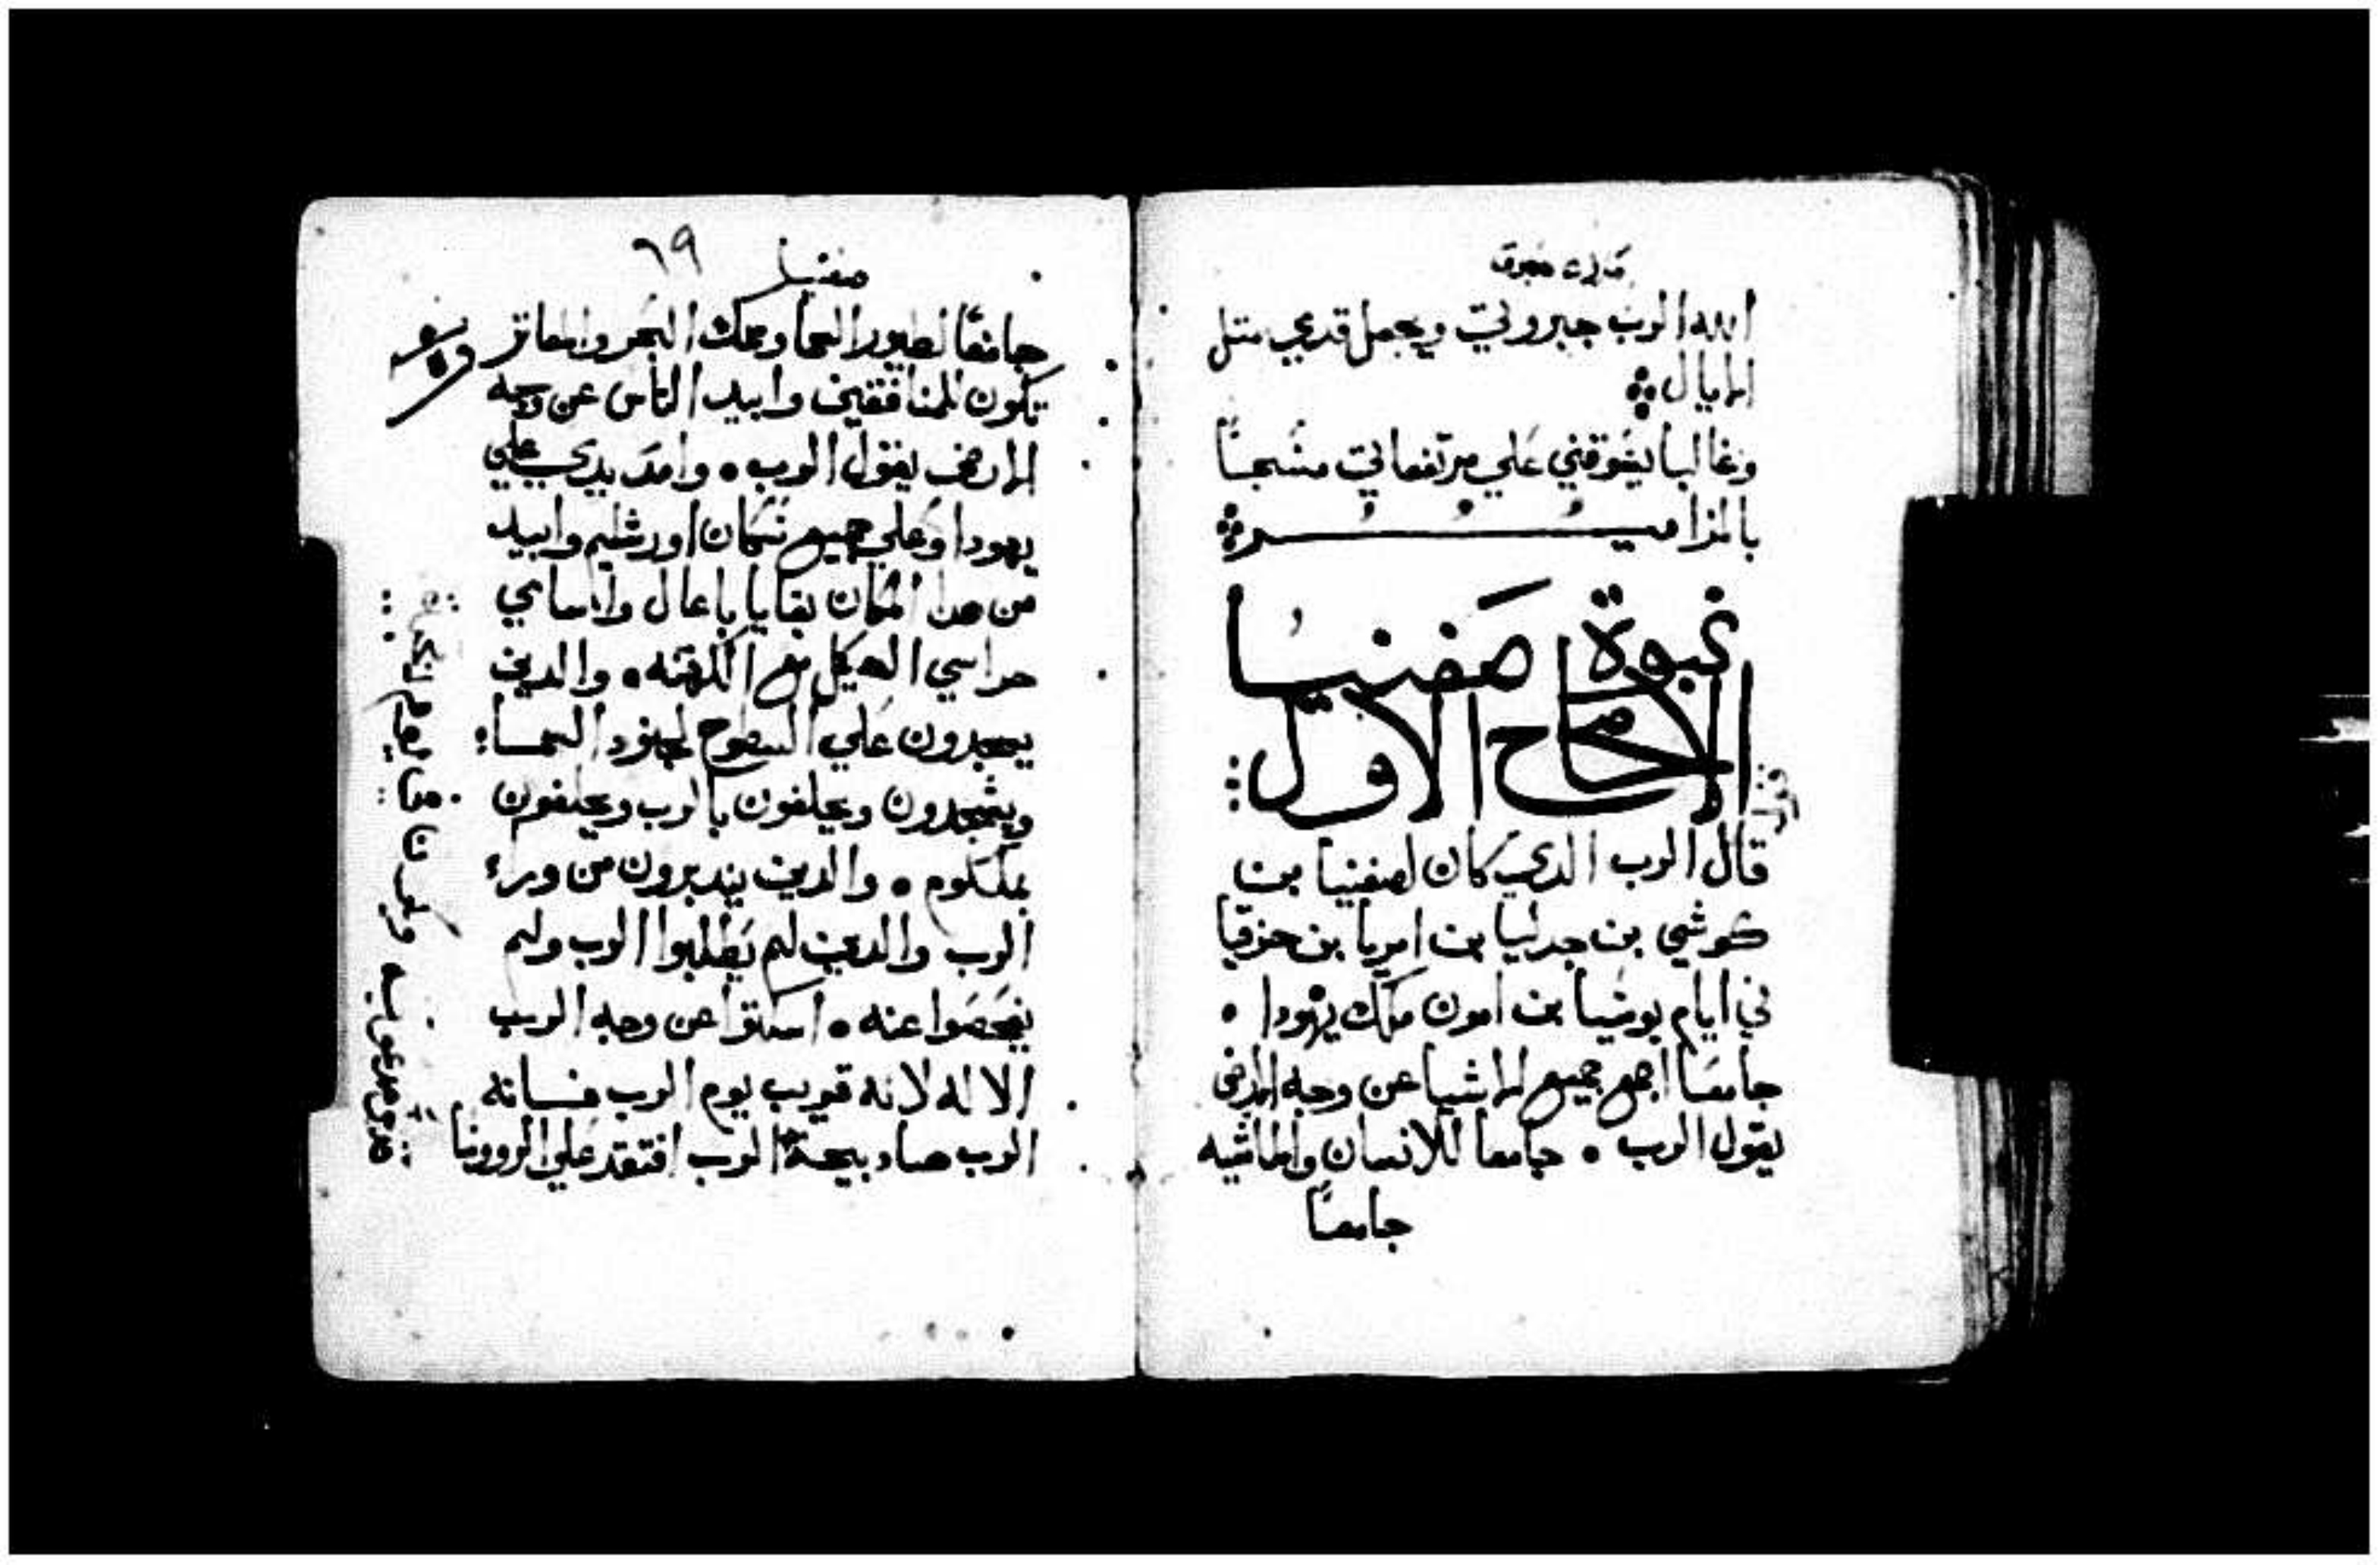 الله الرب جبروتي ويجعل قدمي متل
الايال
وغالبا يفوقني علي مرتفعاتي مسبحًا
بالمزامير
نبوة صفنيا
الاصحاح الاول
قال الرب الدي كان لصفنيا بن
كوشي بن جدليا بن امريا بن حزقيا
في ايام يوشيا بن امون ملك يهودا
جامعا اجمع جميع الاشيا عن وجه الارض
يقول الرب جامعا للانسان والماشيه
جامعًا
صفنيا ٦٩
جامعًا لطيور السما وسمك البحر والمعاتر
تكون للمنافقين وابيد الناس عن وجه
الارض يقول الرب وامد يدي علي
يهودا وعلي جميع سكان اورشليم وابيد
من هدا المكان بقايا باعال واسامي
حراسي الهيكل مع الكهنه والدين
يسجدون علي السطوح لجنود السما
ويسجدون ويحلفون بالرب ويحلفون
بملكوم والدين يتدبرون من وراء
الرب والدين لم يطلبوا الرب ولم
يفحصوا عنه اسكتوا عن وجه الرب
الاله لانه قريب يوم الرب
الرب دبيحة الرب افتقد علي الروونا